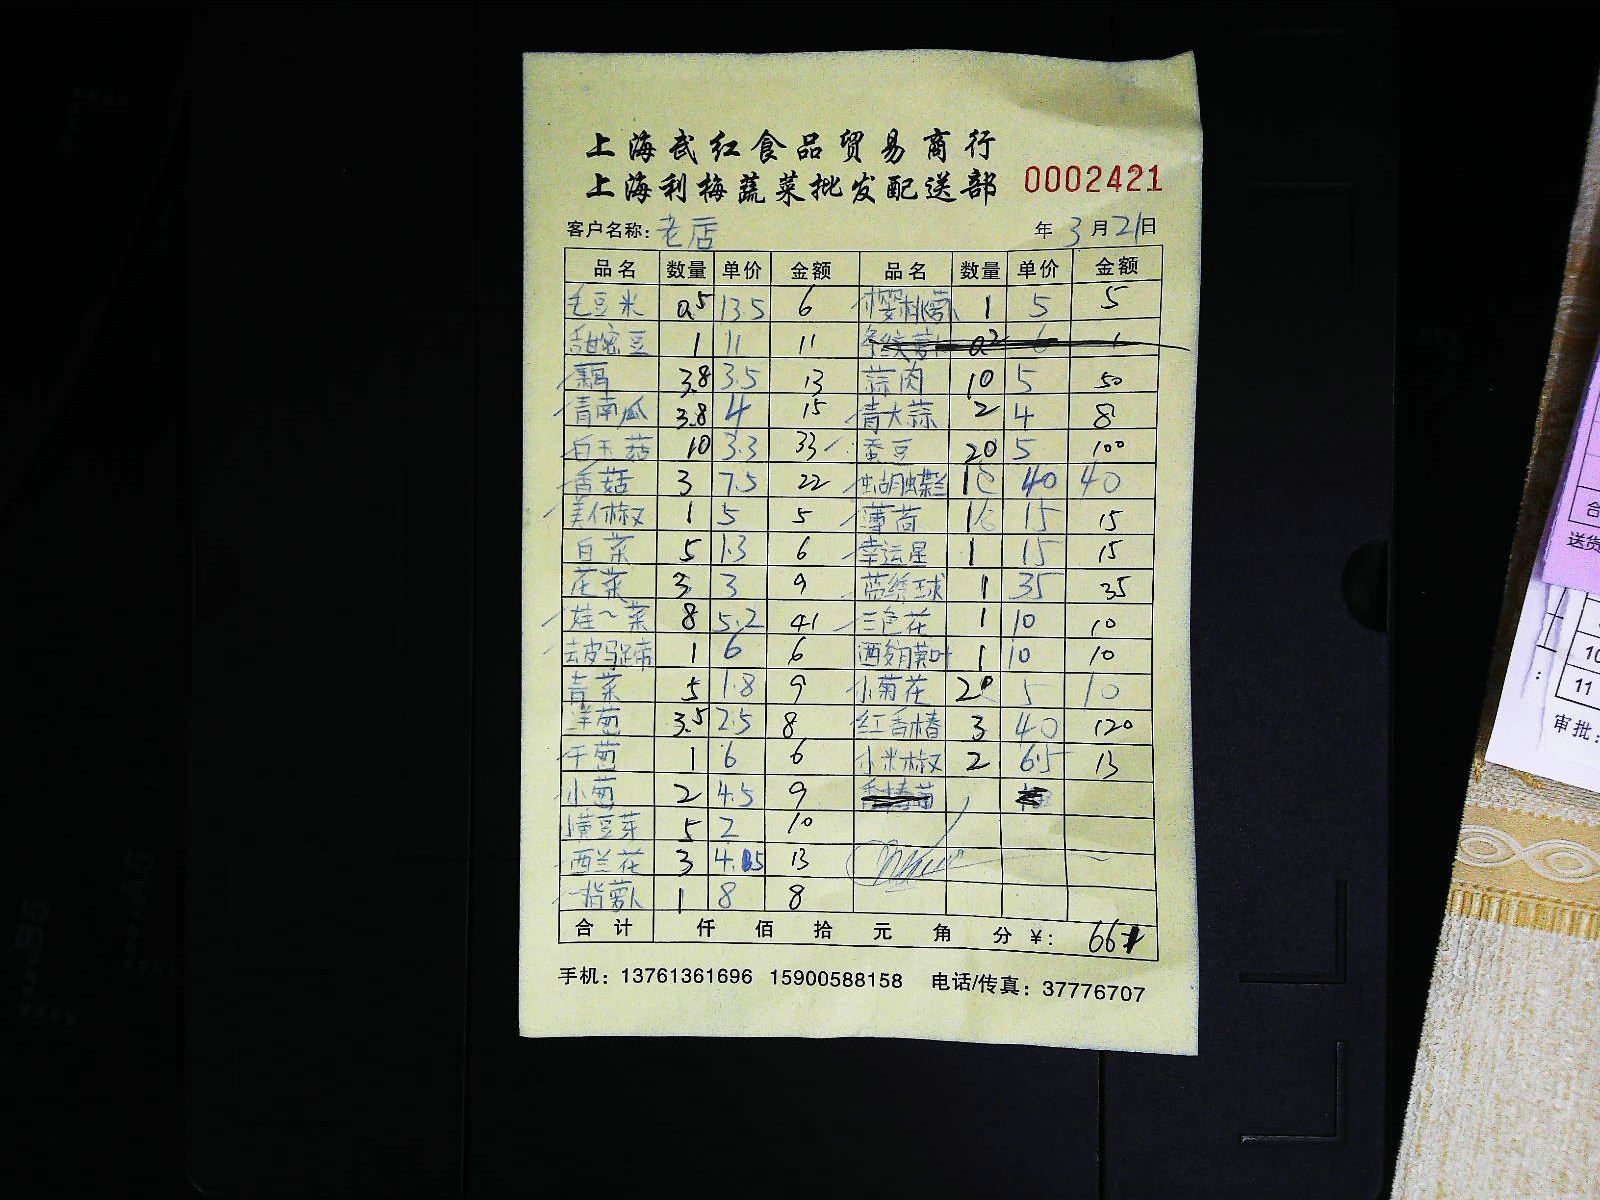 上海武红食品贸易商行
上海利梅蔬菜批发配送部 0002421
客户名称: 老店 年 3 月 21 日
品名 数量 单价 金额 品名 数量 单价 金额
毛豆米 0.5 13.5 6 樱桃萝卜 1 5 5
甜密豆 1 11 11
藕 3.8 3.5 13 蒜肉 10 5 50
青南瓜 3.8 4 15 青大蒜 2 4 8
白玉菇 10 3.3 33 蚕豆 20 5 100
香菇 3 7.5 22 蝴蝶兰 40 40
美人椒 1 5 5 薄荷 15 15
白菜 5 1.3 6 幸运星 1 15 15
花菜 3 3 9 蓝绣球 1 35 35
娃~菜 8 5.2 41 三色花 1 10 10
去皮马蹄 1 6 6 1 10 10
青菜 5 1.8 9 小菊花 5 10
洋葱 3.5 2.5 8 红香椿 3 40 120
干葱 1 6 6 小米椒 2 6.5 13
小葱 2 4.5 9
黄豆芽 5 2 10
西兰花 3 13
1 8 8
合计 仟 佰 拾 元 角 分 ¥:
手机: 13761361696 15900588158 电话/传真: 37776707
合
送货
10
11
审批: